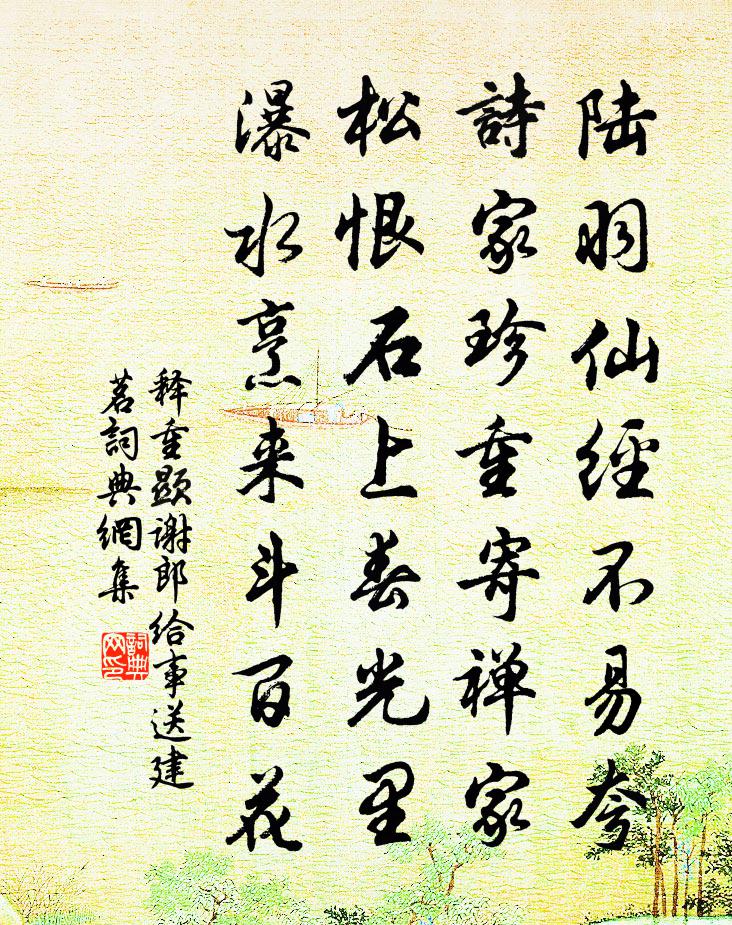 陆羽仙經不易夸
詩家珍重寄禅家
松恨石上春光里
瀑水烹来斗百花
释重顕谢郎给事送建
茗詞典網集
詞典网印